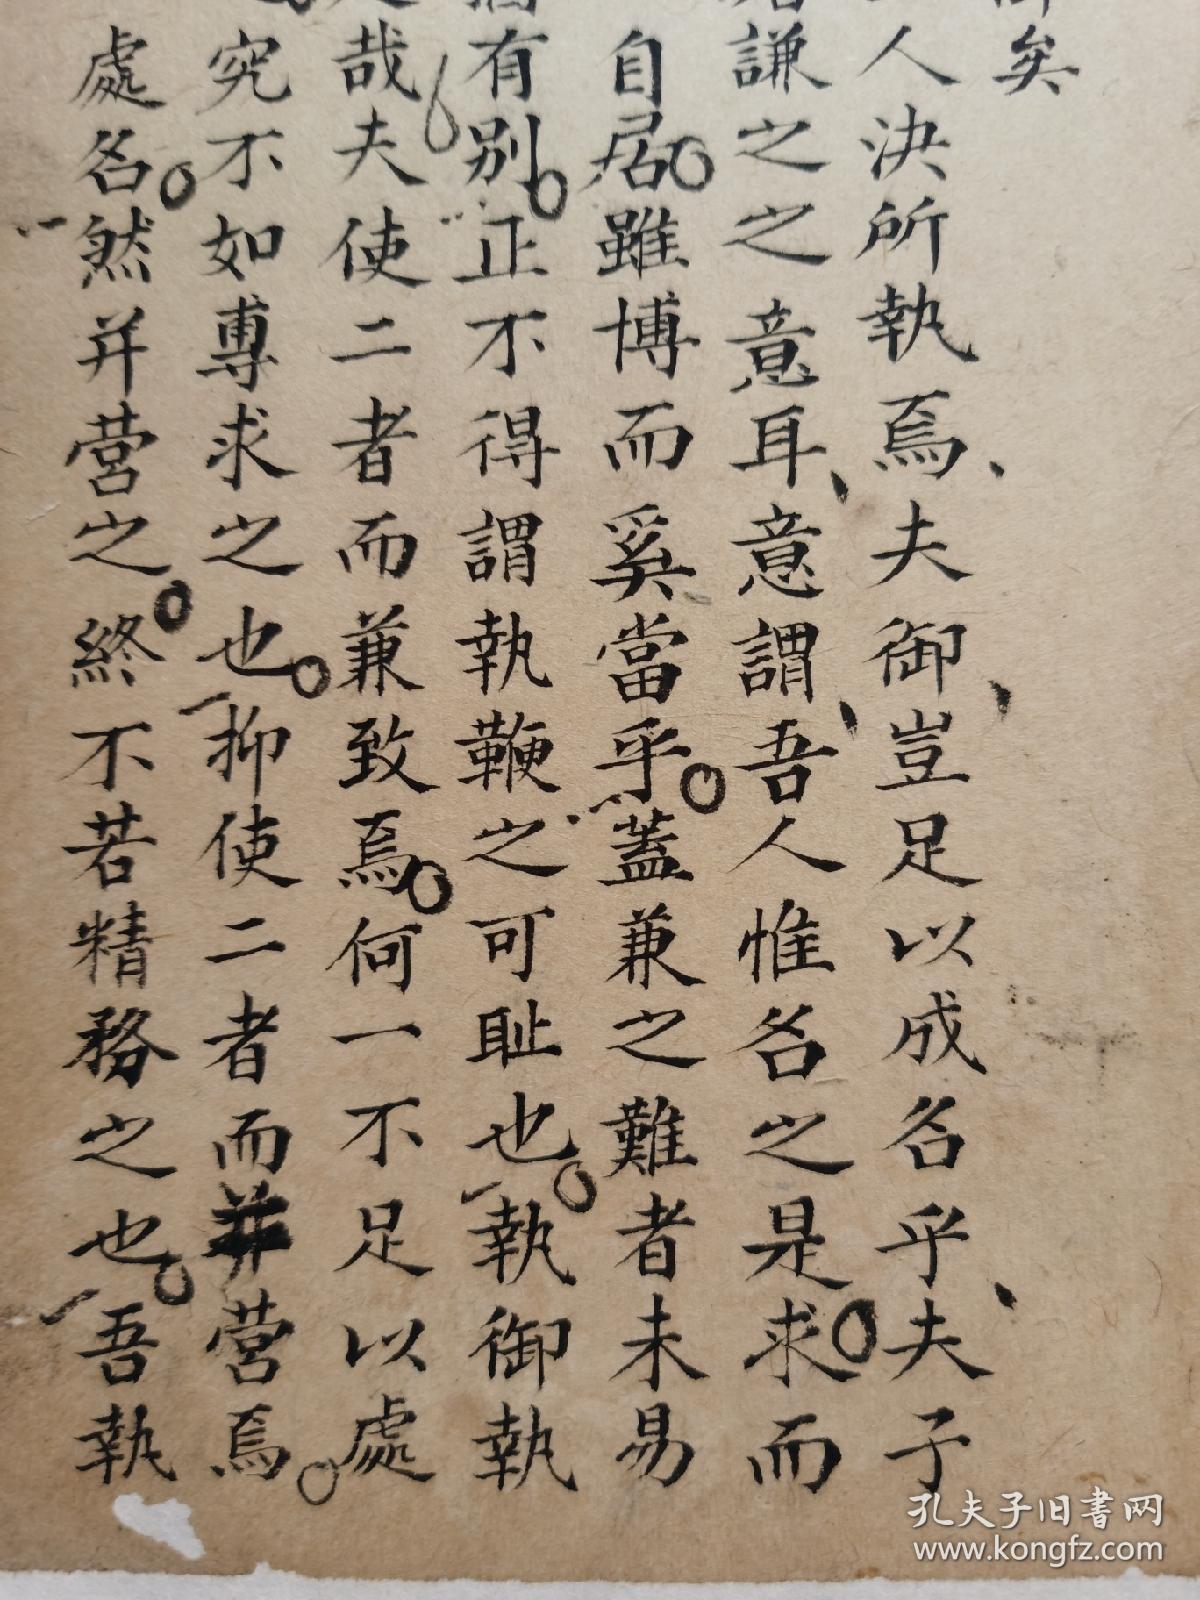 矣
人決所執焉夫御豈足以成名乎夫子
謙之之意耳意謂吾人惟名之是求而
自居雖博而奚當乎蓋兼之難者未易
有別正不得謂執鞭之可恥也執御執
哉夫使二者而兼致焉何一不足以處
究不如專求之也抑使二者而并營焉
處名然并營之終不若精務之也吾執
孔夫子旧书网
www.kongfz.com